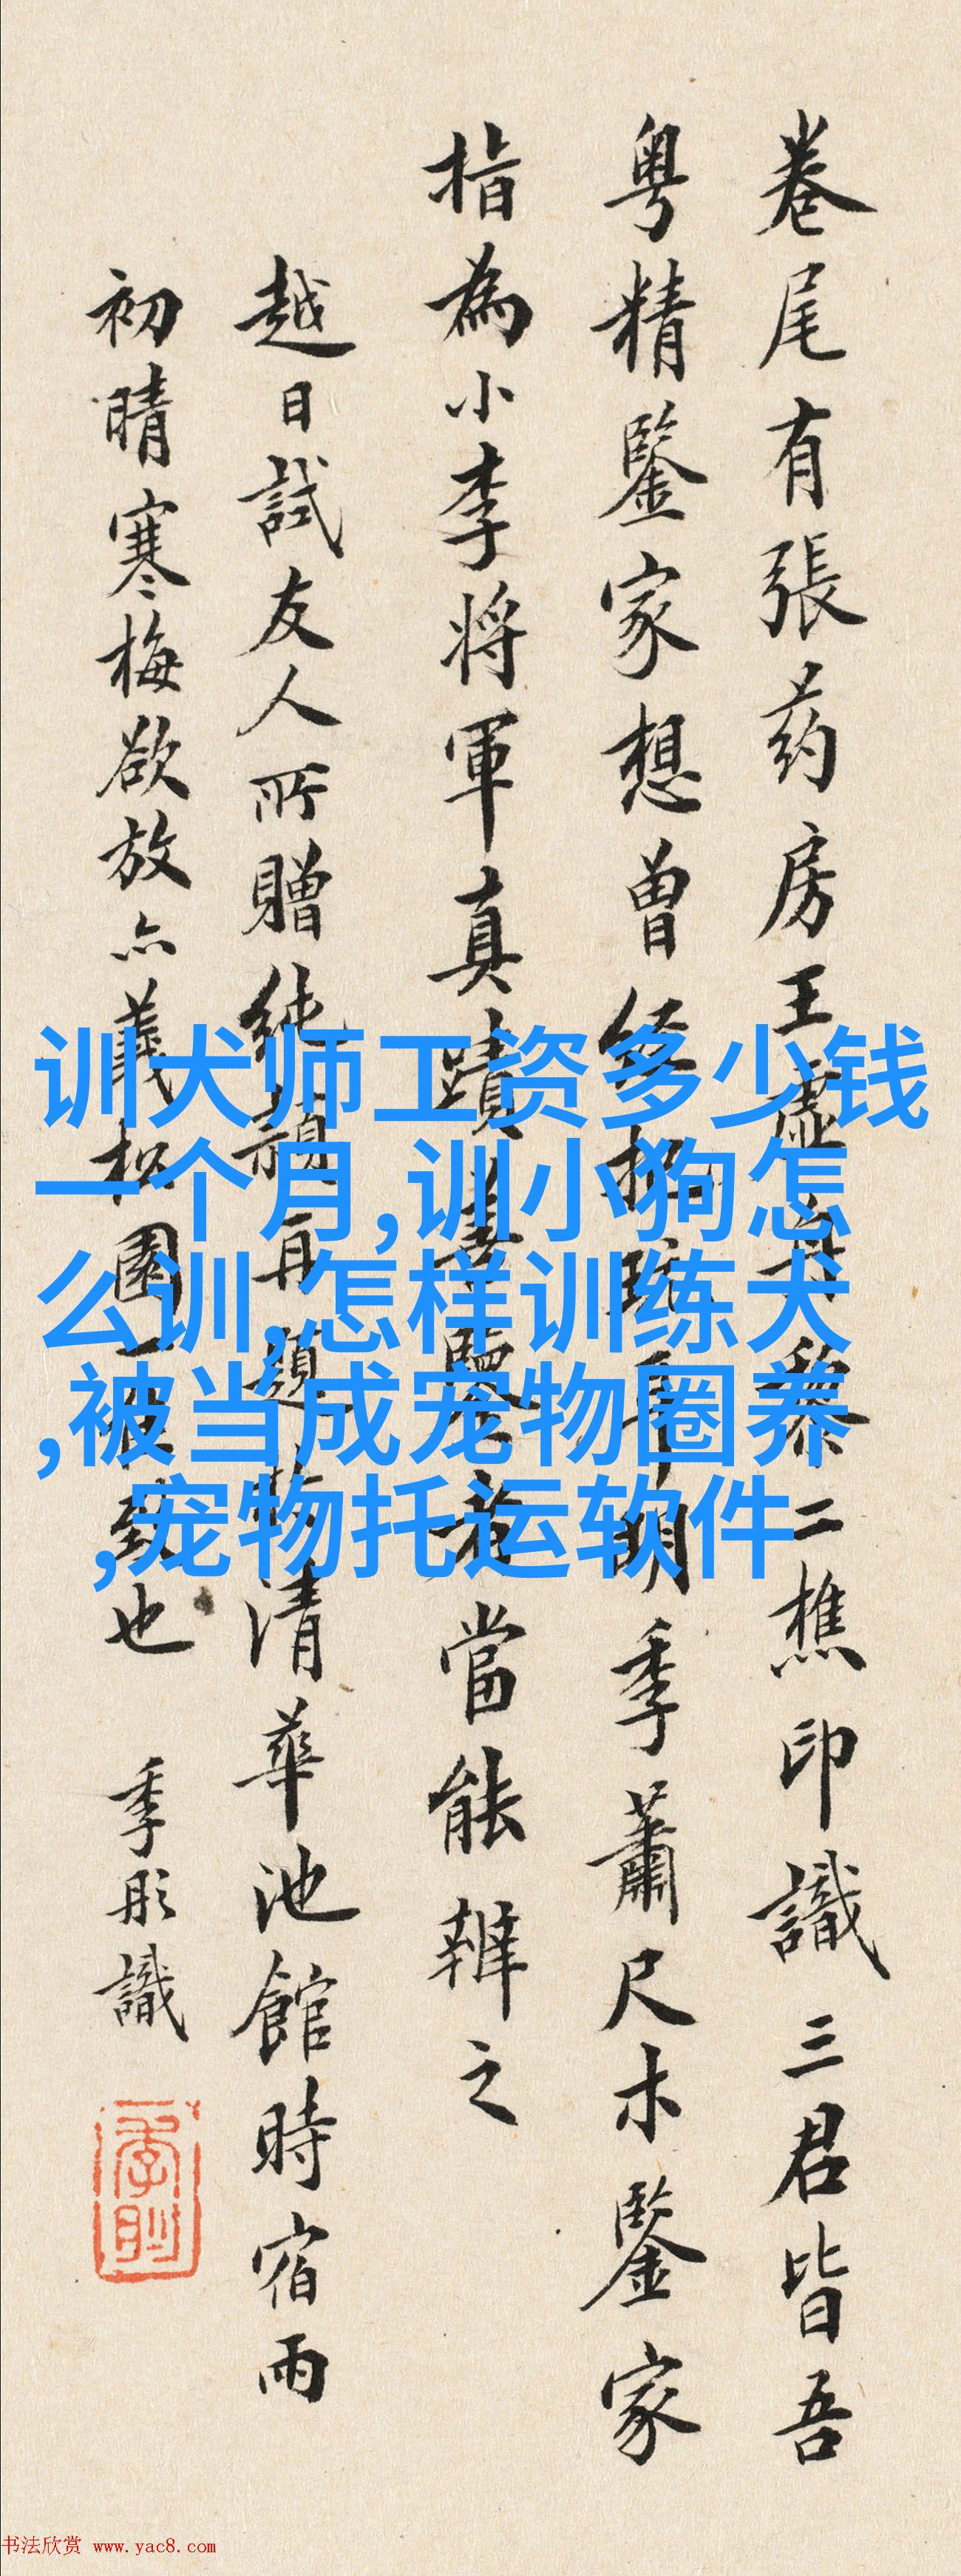 卷尾有張药房王虛舟黎二樵印識三君皆吾
粤精鑒家想曾經招 年明季蕭尺木鑒家
指為小李將軍真蹟善鑒者當能辨之
越日試友人所贈純 再題 清華池館時宿雨
初晴寒梅欲放亦義松園一 致也
季彤識
训犬师工资多少钱
一个月,训小狗怎
么训,怎样训练犬
,被当成宠物圈养
,宠物托运软件
书法欣赏 www.yac8.com